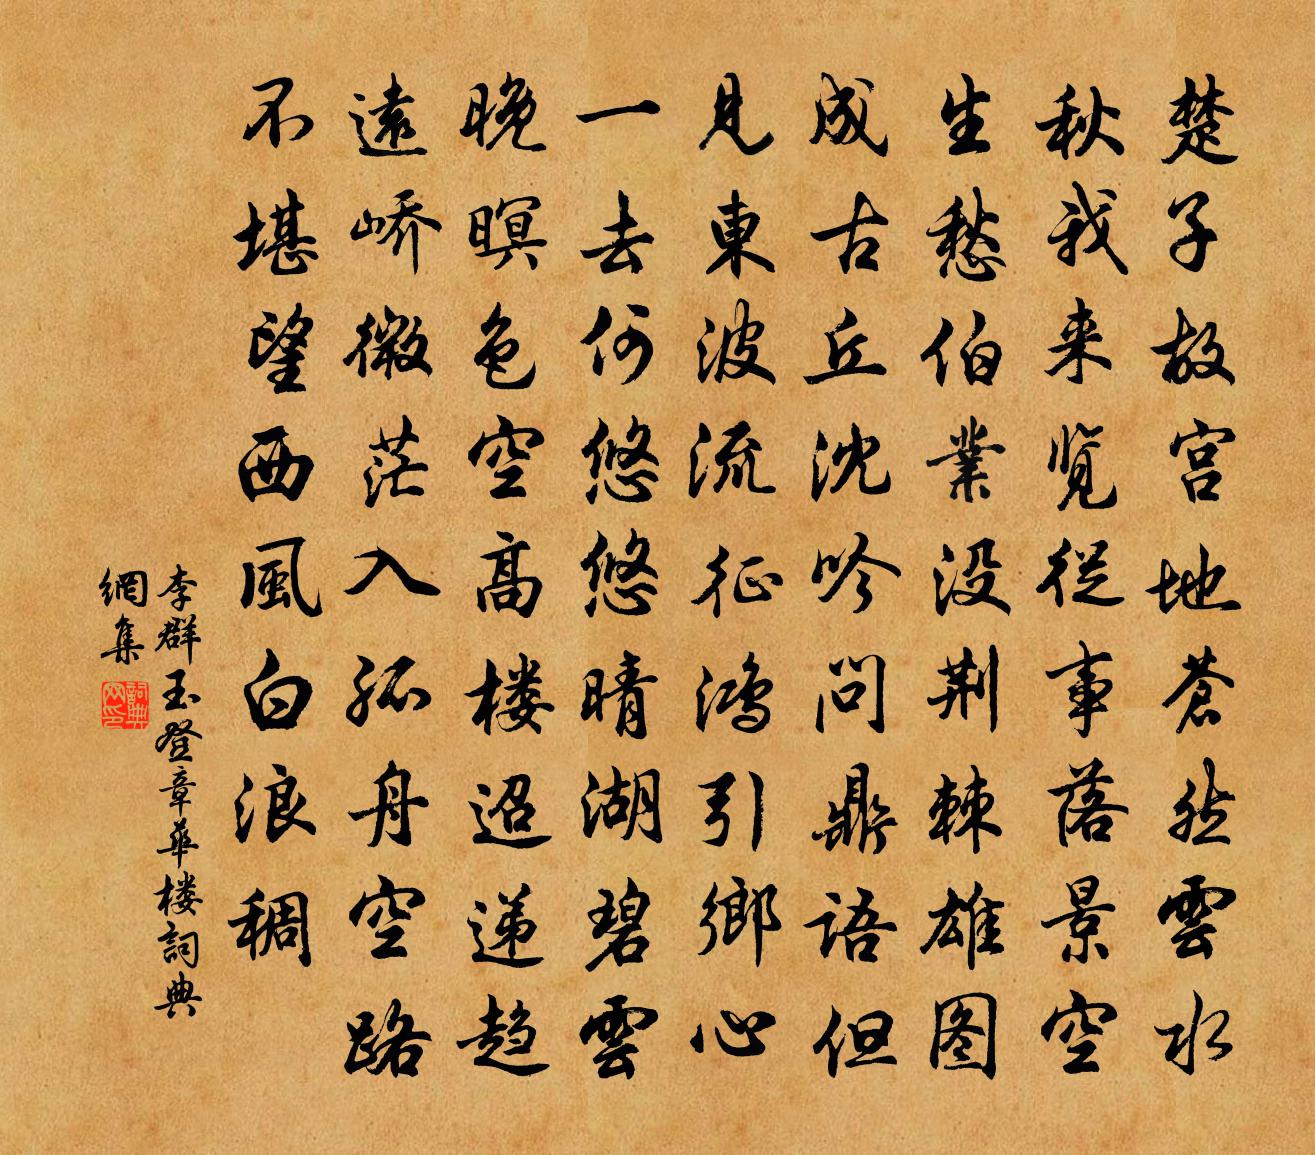 楚子故宫地苍然雲水
秋我来览從事落景空
生愁伯業没荆棘雄图
成古丘沈吟问鼎语但
見東波流征鸿引鄉心
一去何悠悠晴湖碧雲
晚暝色空高楼迢递趋
遠峤微茫入孤舟空路
不堪望西風白浪稠
李群玉登章華楼詞典
網集
詞典
网印